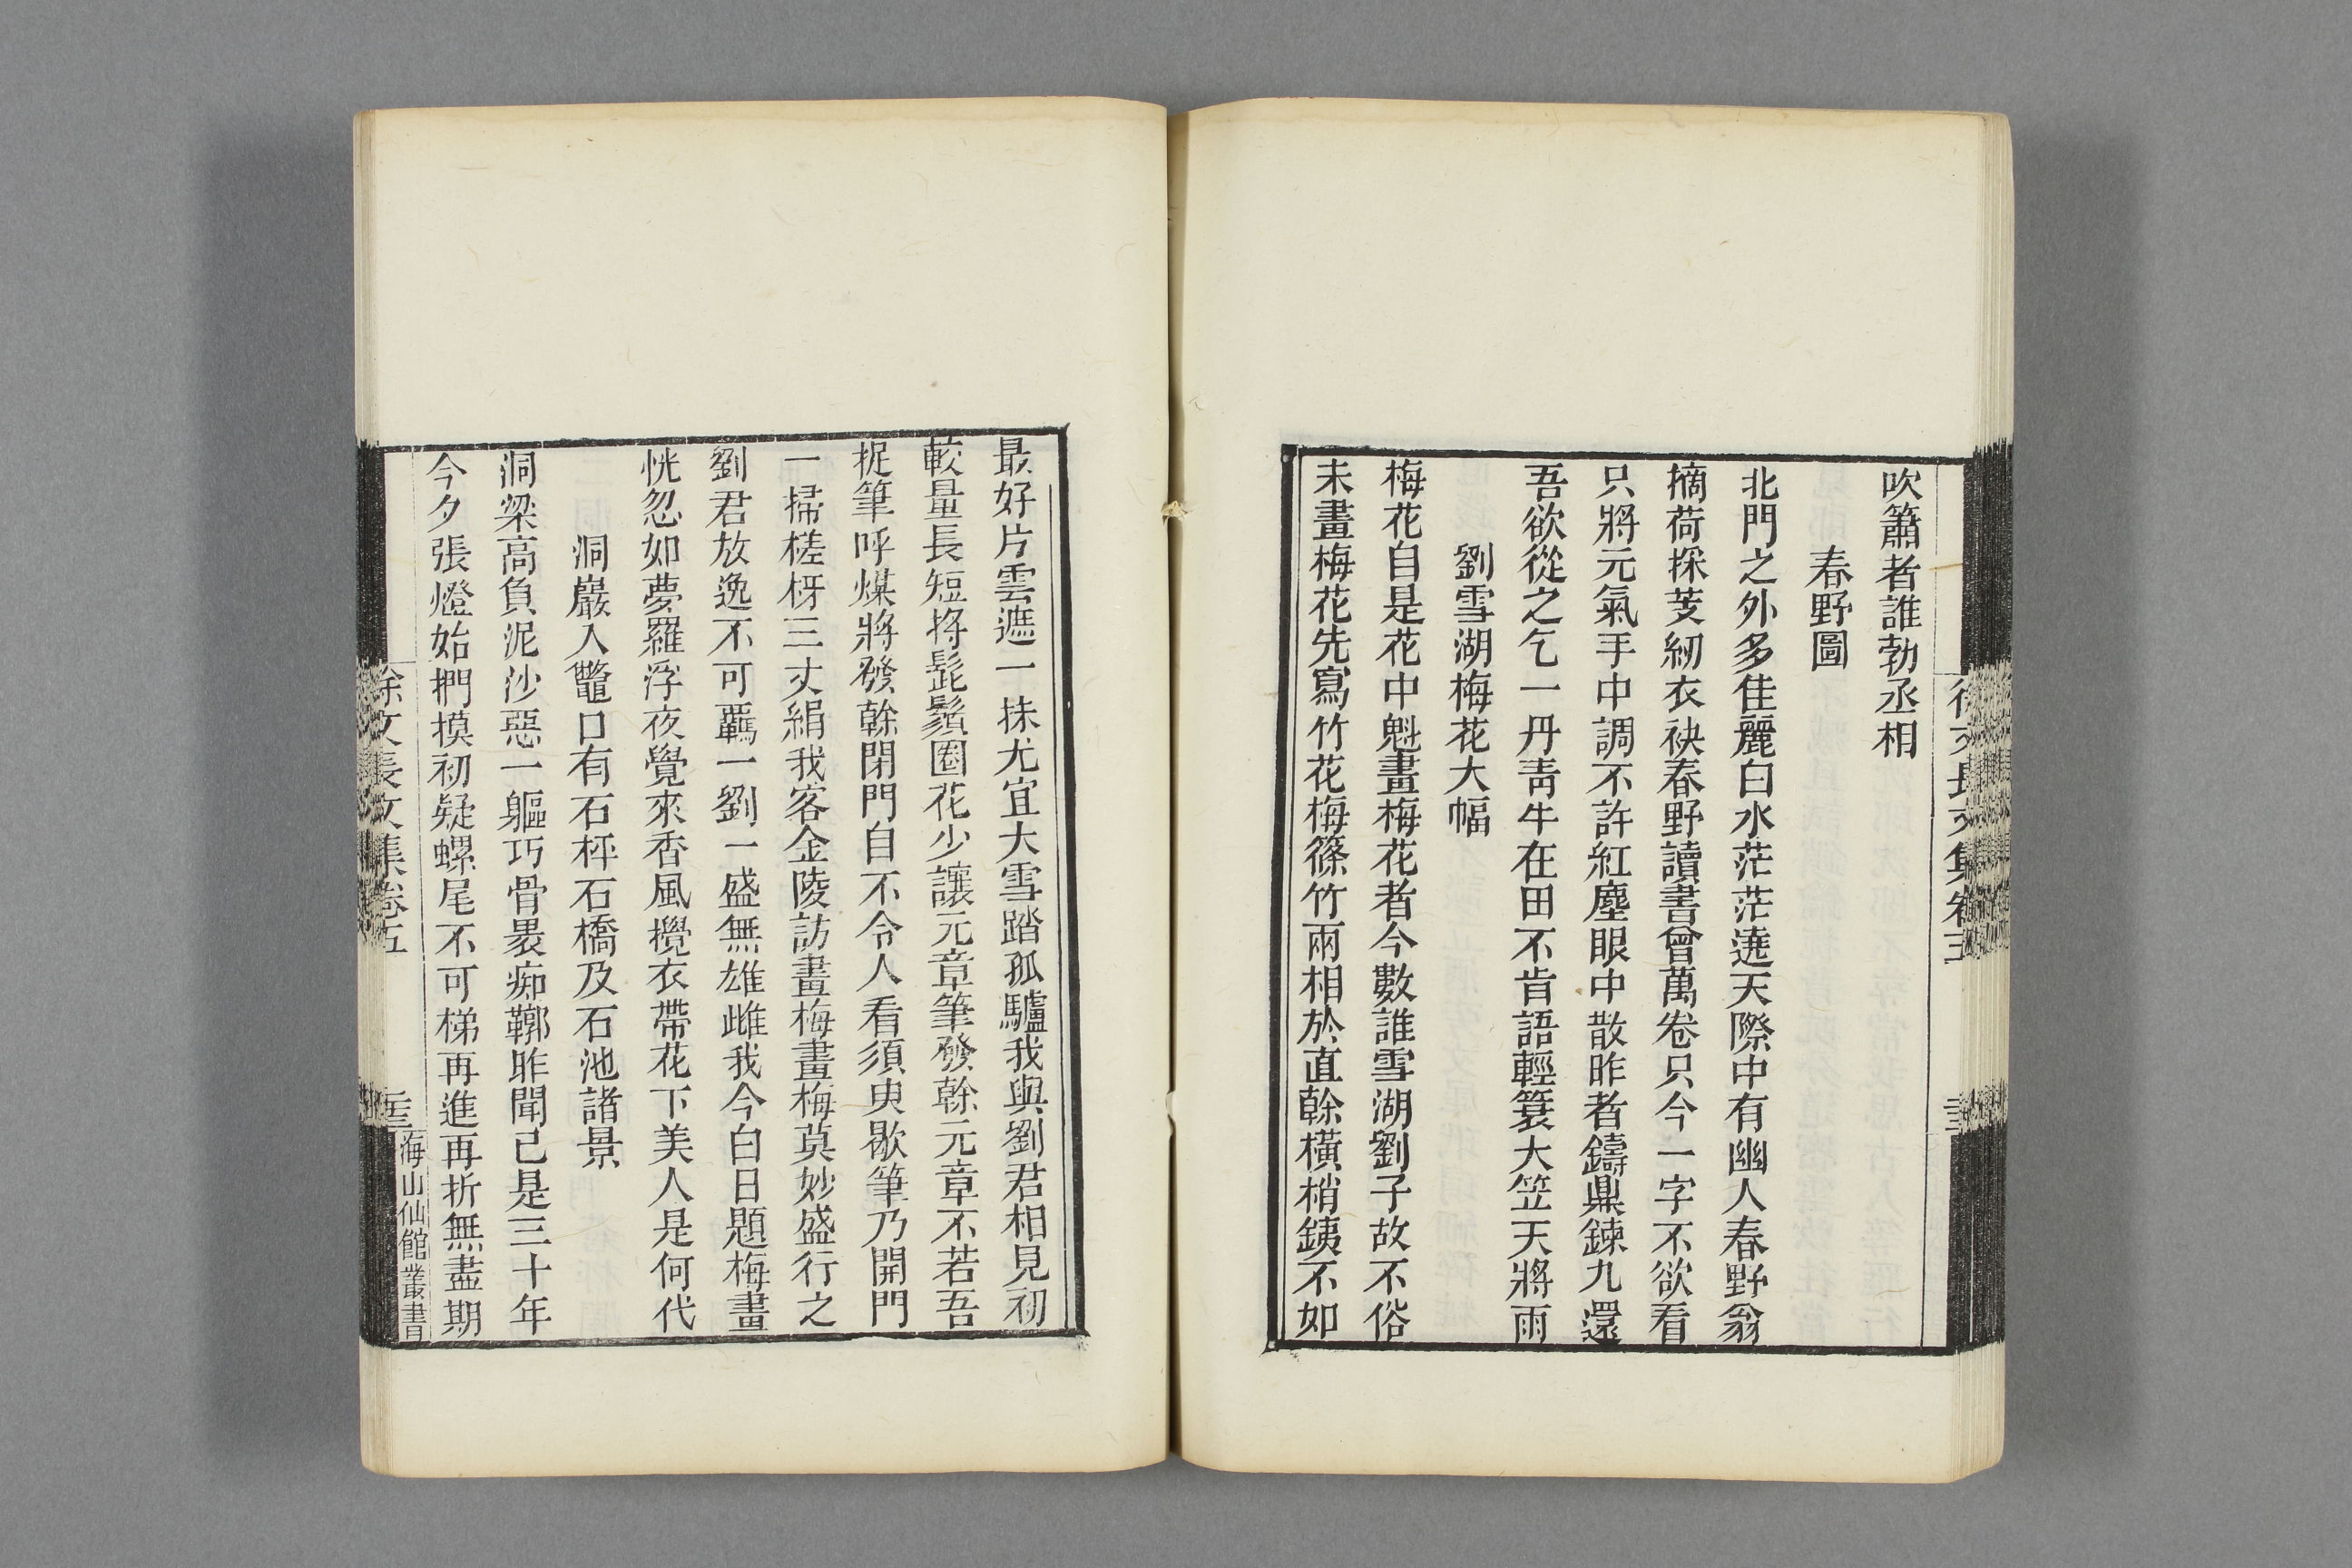 徐文長文集卷五
吹簫者誰勃丞相
春野圖
北門之外多佳麗白水茫茫遶天際中有幽人春野翁
摘荷採芰紉衣袂春野讀書曾萬卷只今一字不欲看
只將元氣手中調不許紅塵眼中散昨者鑄鼎鍊九還
吾欲從之乞一丹靑牛在田不肯語輕簑大笠天將雨
劉雪湖梅花大幅
梅花自是花中魁畫梅花者今數誰雪湖劉子故不俗
未畫梅花先寫竹花梅篠竹兩相於直榦橫梢銕不如
最好片雲遮一抹尤宜大雪踏孤驢我與劉君相見初
較量長短捋髭鬚圈花少讓元章筆發榦元章不若吾
捉筆呼煤將發榦閉門自不令人看須臾歇筆乃開門
一掃槎枒三丈絹我客金陵訪畫梅畫梅莫妙盛行之
劉君放逸不可羈一劉一盛無雄雌我今白日題梅畫
恍忽如夢羅浮夜覺來香風攪衣帶花下美人是何代
洞巖入鼈口有石枰石橋及石池諸景
洞梁高負泥沙惡一軀巧骨褁痂鞹昨聞已是三十年
今夕張燈始捫摸初疑螺尾不可梯再進再折無盡期
徐文長文集卷五
海山仙館叢書